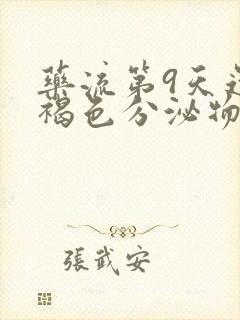 藥流第9天
褐色分泌物
張武安